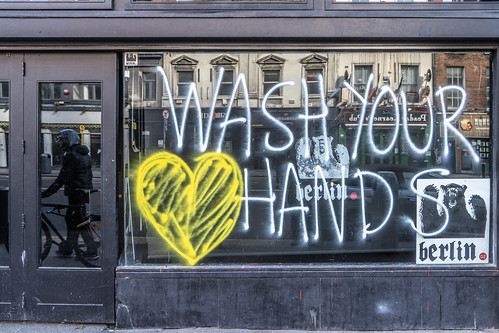 WASH YOUR
HANDS
berlin
berlin